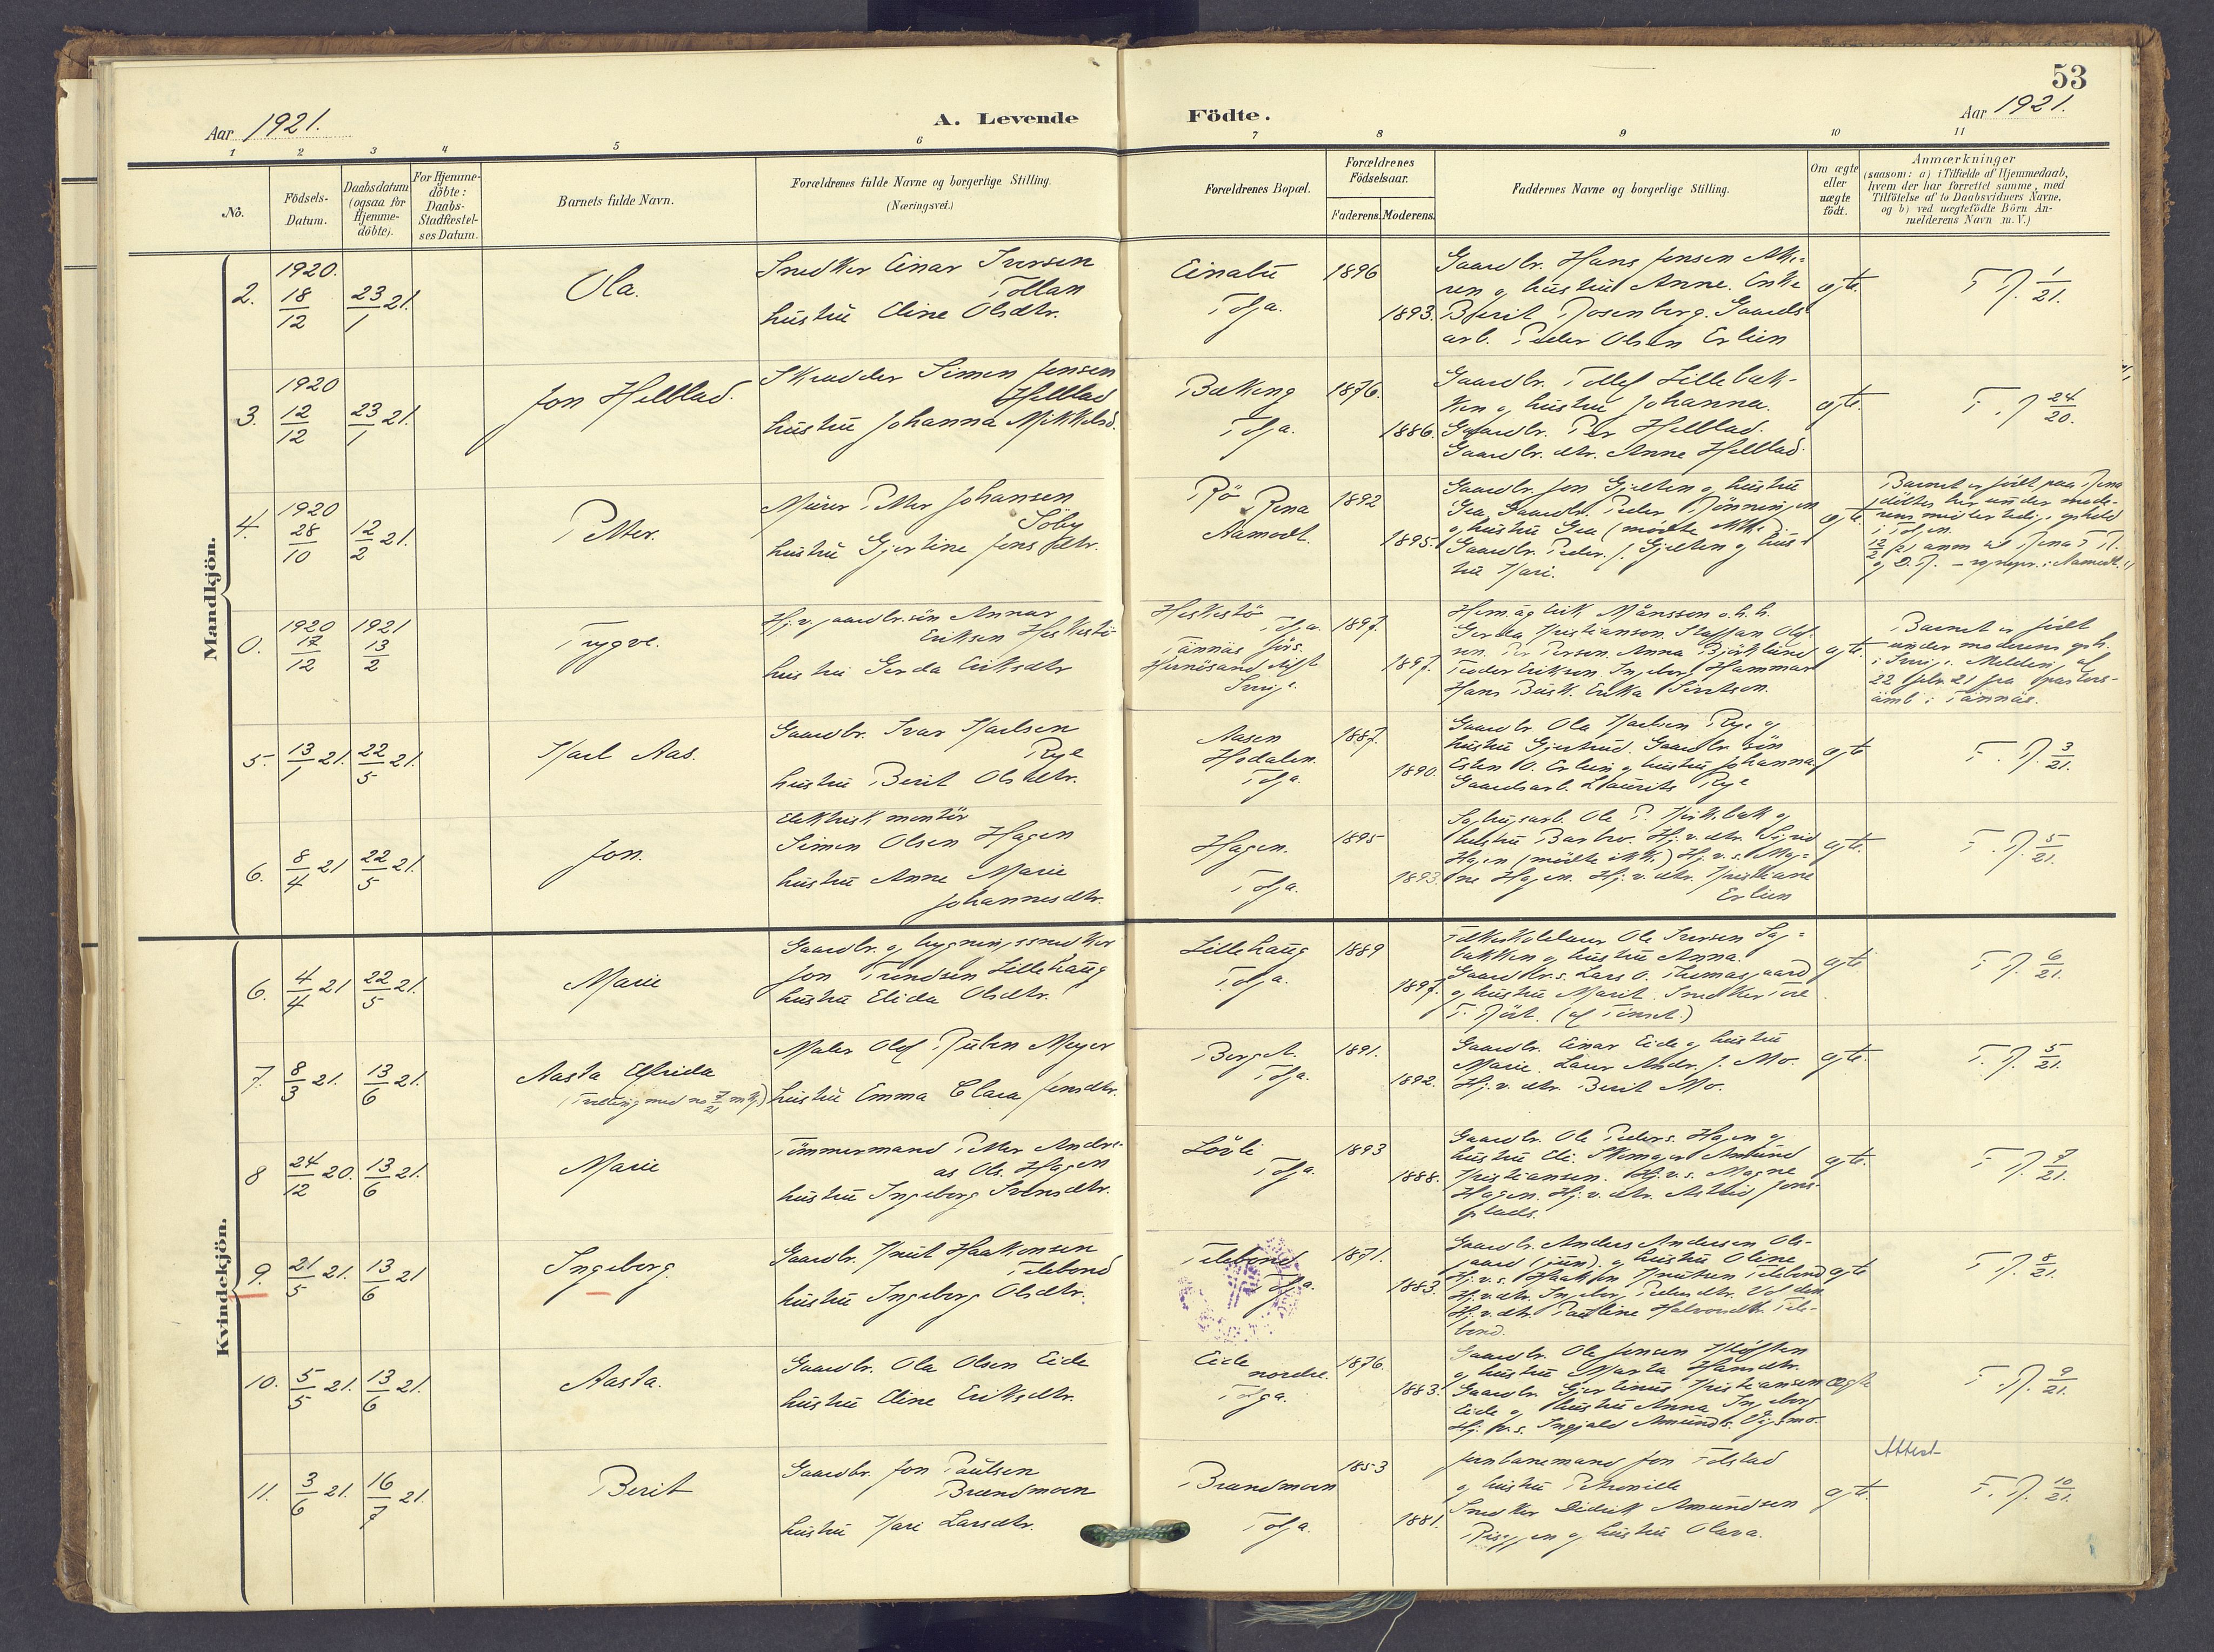 53
Aar 1921.
A. Levende
Födte.
Aar 1921.
1 2 3 4 5 6 7 8 9 10 11
No.
Födsels-
Datum.
Daabsdatum
(ogsaa for
Hjemme-
döbte).
For Hjemme-
döbte:
Daabs-
Stadfæstel-
ses Datum.
Barnets fulde Navn.
Forældrenes fulde Navne og borgerlige Stilling.
(Næringsvei.)
Forældrenes Bopæl.
Forældrenes
Födselsaar.
Faderens.
Moderens.
Faddernes Navne og borgerlige Stilling.
Om ægte
eller
uægte
födt.
Anmærkninger
(saasom: a) i Tilfælde af Hjemmedaab,
hvem der har forrettet samme, med
Tilföielse af to Daabsvidners Navne,
og b) ved uægtefödte Börn An-
melderens Navn m. V.)
Mandkjön.
2.
1920.
18/12
23/1 21.
Ola.
Snedker Einar Iversen
Tollan
hustru Eline Olsdtr.
Einabu
Tolga.
1896
1893.
Gaardbr. Hans Jensen
og hustru Anne. Enke
Berit Rosenberg. Gaards
arb. Peder Olsen Erlien
egte.
F. R. 1/21.
3.
1920
12/12
23/1 21.
Jon Helblad.
Skrædder Simen Jensen
Helblad
hustru Johanna Mikkelsd.
Bakeng
Tolga.
1876.
1886.
Gaardbr. Tollef Lillebak-
ken og hustru Johanna.
Gaardbr. Per Helblad.
Gaardbr. dtr. Anne Helblad.
egte.
F. R. 24/20.
4.
1920
28/10
12/2 21.
Petter.
Murer Petter Johansen
Söby
hustru Gjertine Jensdtr.
Rö Rena
Aamodt.
1892
1895.
Gaardbr. Jon Gjelten og hustru
Gea Gaardbr. Peder Rönningen
og hustru Gea (mödte ikke)
Gaardbr. Peder J. Gjelten og hus-
tru Kari.
egte.
Barnet er födt paa Rena
döbtes her under mode-
rens midlertidig ophold
i Tolgen.
12/2 21 anm til Rena F. R.
0.
1920
17/12
1921
13/2
Trygve.
Hj.v. gaardbr.sön Annar
Eriksen Heskestö
hustru Gerda Eriksdtr
Heskestö
Tolga.
Tännäs förs.
Hernösand stift
Sverige.
1897.
1897.
Hem.äg. Erik Månsson o.h.h.
Gerda Kristianson. Staffan Olof-
son. Per Person. Anna Björklund
Teodor Erikson. Ingeborg Hammar
Hans Busk. Erika Sivertson.
egte.
Barnet er födt
under moderens oph.
i Sverige. Melding af
22 febr. 21 fra pastors-
ämb i Tännäs.
5.
13/1 21.
22/5 21.
Karl Aas.
Gaardbr. Ivar Karlsen
Rye
hustru Berit Olsdtr.
Aasen
Hodalen.
Tolga.
1887.
1890.
Gaardbr Ola Karlsen Rye og
hustru Gjertrud. Gaardbr. sön
Esten O. Erlien og hustru Johanna
Gaardsarb. Laurits Rye
egte
F. R. 3/21.
6.
8/4 21
22/5 21.
Jon.
Elektrisk montör
Simen Olsen Hagen
hustru Anne Marie
Johannesdtr.
Hagen.
Tolga.
1895
1893.
Sagbrugsarb. Ole P. Kirkbak og
hustru Barbro. Hj. v. dtr. Sigrid
Hagen (mödte ikke.) Hj. v. s. Mag-
ne Hagen. Hj. v. dtr. Kristiane
Erlien
egte.
F. R. 5/21.
Kvindekjön.
6.
4/4 21
22/5 21.
Marie
Gaardbr. og bygningssnedker
Jon Trondsen Lillehaug
hustru Elida Olsdtr.
Lillehaug
Tolga.
1889
1897.
Folkeskolelærer Ole Iversen Sag-
bakken og hustru Anna.
Gaardbr.s. Lars O. Thomasgaard
og hustru Marit. Snedker Tore
(af Tönset.)
egte.
F. R. 6/21.
7.
8/3 21.
13/6 21.
Aasta Elfrida
(Tvilling med no 7/21 mkj.)
Maler Olof Ruben Meyer
hustru Emma Clara Jensdtr.
Berget.
Tolga.
1891.
1892.
Gaardbr. Einar Eide og hustru
Marie. Lærer Andr. J. Mo.
Hj. v. dtr. Berit Mo.
egte.
F. R. 5/21.
8
24/12 20.
13/6 21.
Marie
Tömmermand Petter Andre-
as Ols. Hagen
hustru Ingeborg Svensdtr.
Lövli
Tolga.
1893
1888.
Gaardbr. Ole Peders. Hagen og
hustru Eli. Skomager Amund
Kristiansen. Hj.v.s. Magne
Hagen. Hj. v. dtr. Astrid Jons-
plads.
egte.
F. R. 7/21.
9.
21/5 21.
13/6 21
Ingeborg.
Gaardbr. Knut Haakonsen
Telebond
hustru Ingeborg Olsdtr.
Telebond
Tolga.
1871.
1883.
Gaardbr. Anders Andersen Ols-
gaard (jun). og hustru Oline
Hj. v. s. Haakon Knutsen Telebond
Hj. v. dtr. Ingeborg Pedersdtr. Volden
Hj. v. dtr. Pauline Halvorsdtr. Tele-
bond.
egte
F. R. 8/21.
10.
5/5 21.
13/6 21.
Aasta.
Gaardbr. Ola Olsen Eide
hustru Eline Eriksdtr.
Eide
nordre.
Tolga.
1876.
1883.
Gaardbr. Ole Jensen Klöften
og hustru Marta Hansdtr.
Gaardbr. Gjertinus Kristiansen
Eide og hustru Anna Ingeborg
Hj. v. s. Ingjald Amunds. Vigsmo
ægte
F. R. 9/21.
11.
3/6 21.
16/7 21.
Berit
Gaardbr. Jon Paulsen
Brændmoen
hustru Kari Larsdtr.
Brændmoen
Tolga.
1853
1881.
Jernbanemand Jon Tolstad
og hustru Petronille
Snedker Didrik Amundsen
og hustru Olava.
egte.
Attest
F. R. 10/21.